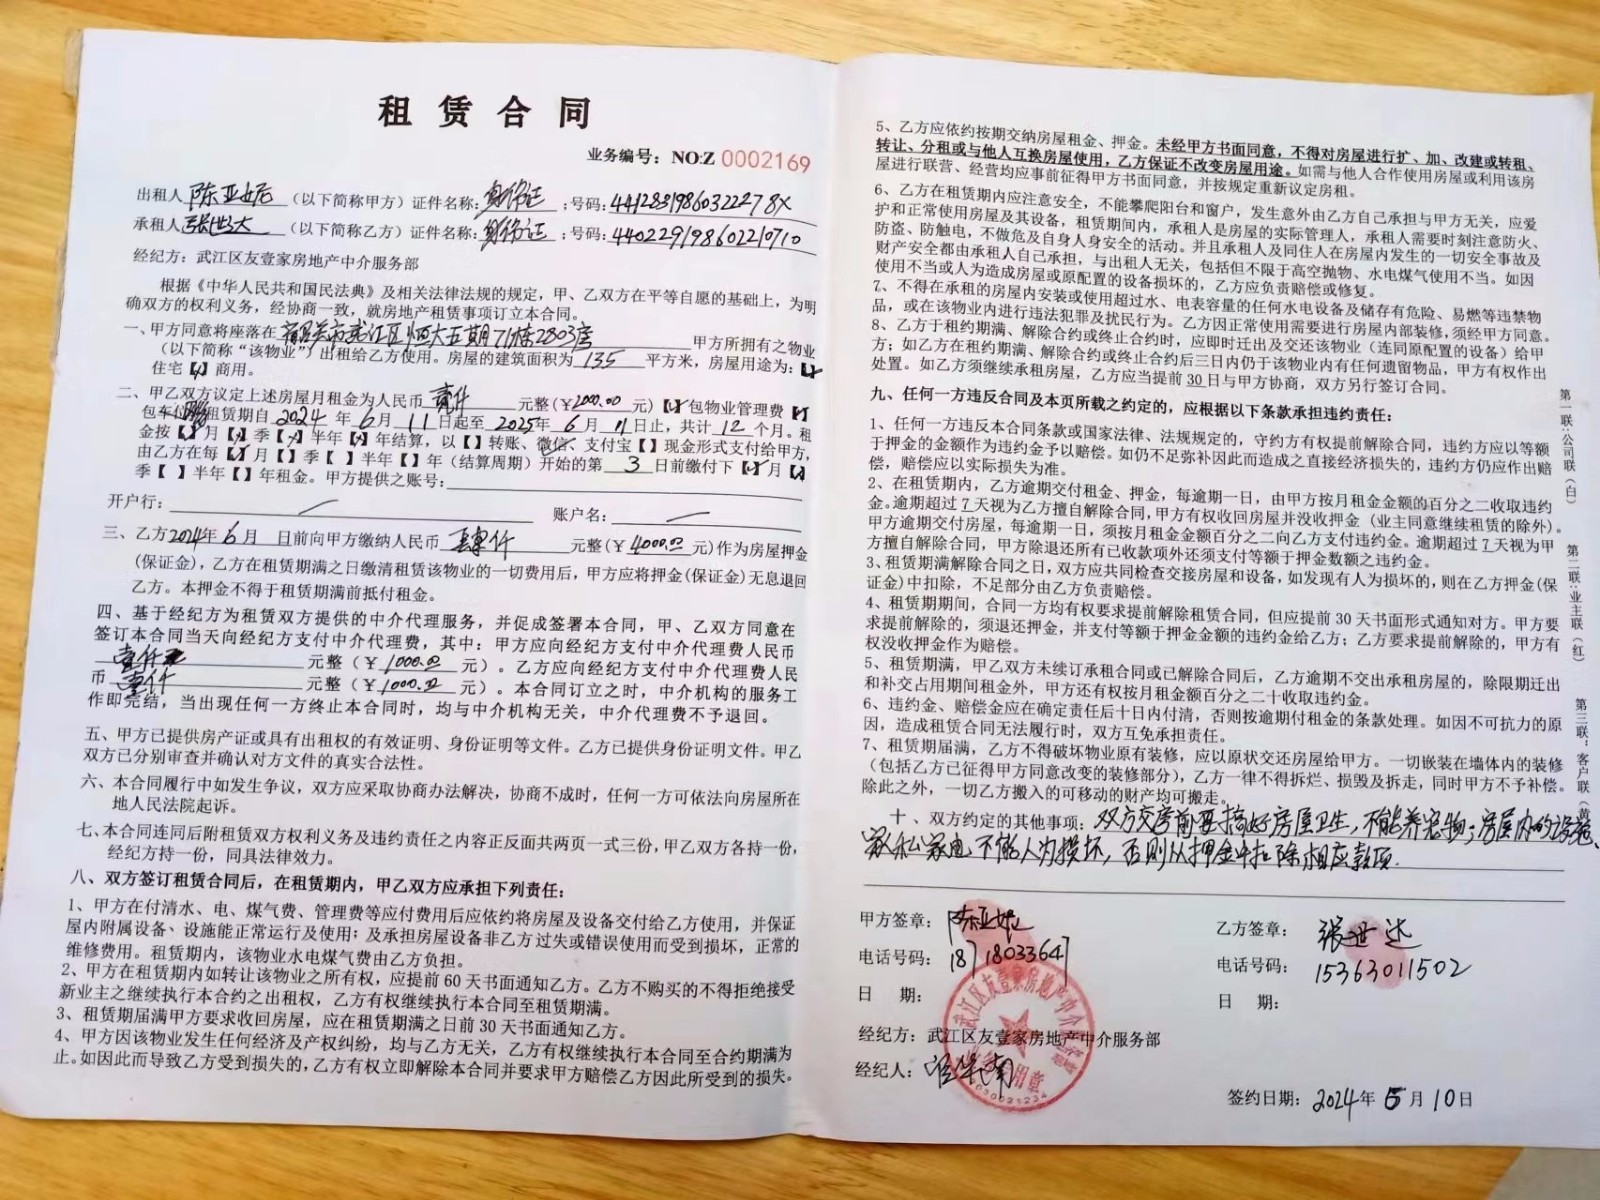 租赁合同
业务编号：NO:Z 0002169
出租人 陈亚妮 （以下简称甲方）证件名称：身份证；号码：
承租人 张世达 （以下简称乙方）证件名称：身份证；号码：440229198602210710
经纪方：武江区友壹家房地产中介服务部
根据《中华人民共和国民法典》及相关法律法规的规定，甲、乙双方在平等自愿的基础上，为明
确双方的权利义务，经协商一致，就房地产租赁事项订立本合同。
一、甲方同意将座落在 韶关市武江区恒大五期71栋2803房 甲方所拥有之物业
（以下简称“该物业”）出租给乙方使用。房屋的建筑面积为 135 平方米，房屋用途为：【✓】
住宅【 】商用。
二、甲乙双方议定上述房屋月租金为人民币 贰仟 元整(￥2000.00 元)【✓】包物业管理费【 】
包车位 租赁期自 2024 年 6 月 11 日起至 2025 年 6 月 11 日止，共计 12 个月。租
金按【✓】月【 】季【 】半年【 】年结算，以【 】转账、微信、支付宝【 】现金形式支付给甲方，
由乙方在每【✓】月【 】季【 】半年【 】年（结算周期）开始的第 3 日前缴付下【✓】月【 】
季【 】半年【 】年租金。甲方提供之账号：
开户行： / 账户名： /
三、乙方 2024年 6月 日前向甲方缴纳人民币 肆仟 元整(￥4000.00 元)作为房屋押金
(保证金)，乙方在租赁期满之日缴清租赁该物业的一切费用后，甲方应将押金(保证金)无息退回
乙方。本押金不得于租赁期满前抵付租金。
四、基于经纪方为租赁双方提供的中介代理服务，并促成签署本合同，甲、乙双方同意在
签订本合同当天向经纪方支付中介代理费，其中：甲方应向经纪方支付中介代理费人民币
壹仟 元整（￥1000.00 元）。乙方应向经纪方支付中介代理费人民
币 壹仟 元整（￥1000.00 元）。本合同订立之时，中介机构的服务工
作即完结，当出现任何一方终止本合同时，均与中介机构无关，中介代理费不予退回。
五、甲方已提供房产证或具有出租权的有效证明、身份证明等文件。乙方已提供身份证明文件。甲乙
双方已分别审查并确认对方文件的真实合法性。
六、本合同履行中如发生争议，双方应采取协商办法解决，协商不成时，任何一方可依法向房屋所在
地人民法院起诉。
七、本合同连同后附租赁双方权利义务及违约责任之内容正反面共两页一式三份，甲乙双方各持一份，
经纪方持一份，同具法律效力。
八、双方签订租赁合同后，在租赁期内，甲乙双方应承担下列责任：
1、甲方在付清水、电、煤气费、管理费等应付费用后应依约将房屋及设备交付给乙方使用，并保证
屋内附属设备、设施能正常运行及使用；及承担房屋设备非乙方过失或错误使用而受到损坏，正常的
维修费用。租赁期内，该物业水电煤气费由乙方负担。
2、甲方在租赁期内如转让该物业之所有权，应提前60天书面通知乙方。乙方不购买的不得拒绝接受
新业主之继续执行本合约之出租权，乙方有权继续执行本合同至租赁期满。
3、租赁期届满甲方要求收回房屋，应在租赁期满之日前30天书面通知乙方。
4、甲方因该物业发生任何经济及产权纠纷，均与乙方无关，乙方有权继续执行本合同至合约期满为
止。如因此而导致乙方受到损失的，乙方有权立即解除本合同并要求甲方赔偿乙方因此所受到的损失。
5、乙方应依约按期交纳房屋租金、押金。未经甲方书面同意，不得对房屋进行扩、加、改建或转租、
转让、分租或与他人互换房屋使用，乙方保证不改变房屋用途。如需与他人合作使用房屋或利用该房
屋进行联营、经营均应事前征得甲方书面同意，并按规定重新议定房租。
6、乙方在租赁期内应注意安全，不能攀爬阳台和窗户，发生意外由乙方自己承担与甲方无关，应爱
护和正常使用房屋及其设备，租赁期间内，承租人是房屋的实际管理人，承租人需要时刻注意防火、
防盗、防触电，不做危及自身人身安全的活动。并且承租人及同住人在房屋内发生的一切安全事故及
财产安全都由承租人自己承担，与出租人无关，包括但不限于高空抛物、水电煤气使用不当。如因
使用不当或人为造成房屋或原配置的设备损坏的，乙方应负责赔偿或修复。
7、不得在承租的房屋内安装或使用超过水、电表容量的任何水电设备及储存有危险、易燃等违禁物
品，或在该物业内进行违法犯罪及扰民行为。乙方因正常使用需要进行房屋内部装修，须经甲方同意。
8、乙方于租约期满、解除合约或终止合约时，应即时迁出及交还该物业（连同原配置的设备）给甲
方；如乙方在租约期满、解除合约或终止合约后三日内仍于该物业内有任何遗留物品，甲方有权作出
处置。如乙方须继续承租房屋，乙方应当提前30日与甲方协商，双方另行签订合同。
九、任何一方违反合同及本页所载之约定的，应根据以下条款承担违约责任：
1、任何一方违反本合同条款或国家法律、法规规定的，守约方有权提前解除合同，违约方应以等额
于押金的金额作为违约金予以赔偿。如仍不足弥补因此而造成之直接经济损失的，违约方仍应作出赔
偿，赔偿应以实际损失为准。
2、在租赁期内，乙方逾期交付租金、押金，每逾期一日，由甲方按月租金金额的百分之二收取违约
金。逾期超过7天视为乙方擅自解除合同，甲方有权收回房屋并没收押金（业主同意继续租赁的除外）。
甲方逾期交付房屋，每逾期一日，须按月租金金额百分之二向乙方支付违约金。逾期超过7天视为甲
方擅自解除合同，甲方除退还所有已收款项外还须支付等额于押金数额之违约金。
3、租赁期满解除合同之日，双方应共同检查交接房屋和设备，如发现有人为损坏的，则在乙方押金(保
证金)中扣除，不足部分由乙方负责赔偿。
4、租赁期期间，合同一方均有权要求提前解除租赁合同，但应提前30天书面形式通知对方。甲方要
求提前解除的，须退还押金，并支付等额于押金金额的违约金给乙方；乙方要求提前解除的，甲方有
权没收押金作为赔偿。
5、租赁期满，甲乙双方未续订承租合同或已解除合同后，乙方逾期不交出承租房屋的，除限期迁出
和补交占用期间租金外，甲方还有权按月租金额百分之二十收取违约金。
6、违约金、赔偿金应在确定责任后十日内付清，否则按逾期付租金的条款处理。如因不可抗力的原
因，造成租赁合同无法履行时，双方互免承担责任。
7、租赁期届满，乙方不得破坏物业原有装修，应以原状交还房屋给甲方。一切嵌装在墙体内的装修
（包括乙方已征得甲方同意改变的装修部分），乙方一律不得拆烂、损毁及拆走，同时甲方不予补偿。
除此之外，一切乙方搬入的可移动的财产均可搬走。
十、双方约定的其他事项：双方交房前要搞好房屋卫生，不能养宠物；房屋内的设施、
家私家电不能人为损坏，否则从押金中扣除相应款项.
甲方签章：陈亚妮 乙方签章：张世达
电话号码：18718033647 电话号码：15363011502
日 期： 日 期：
经纪方：武江区友壹家房地产中介服务部
经纪人：
签约日期：2024年 5月 10日
武江区友壹家房地产中介服务部
第一联：公司联（白）
第二联：业主联（红）
第三联：客户联（黄